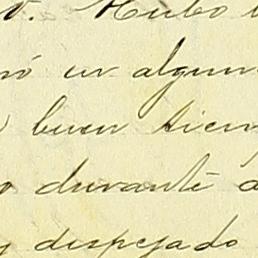 Hubo
en algun
buen tiem
durante
y despejado